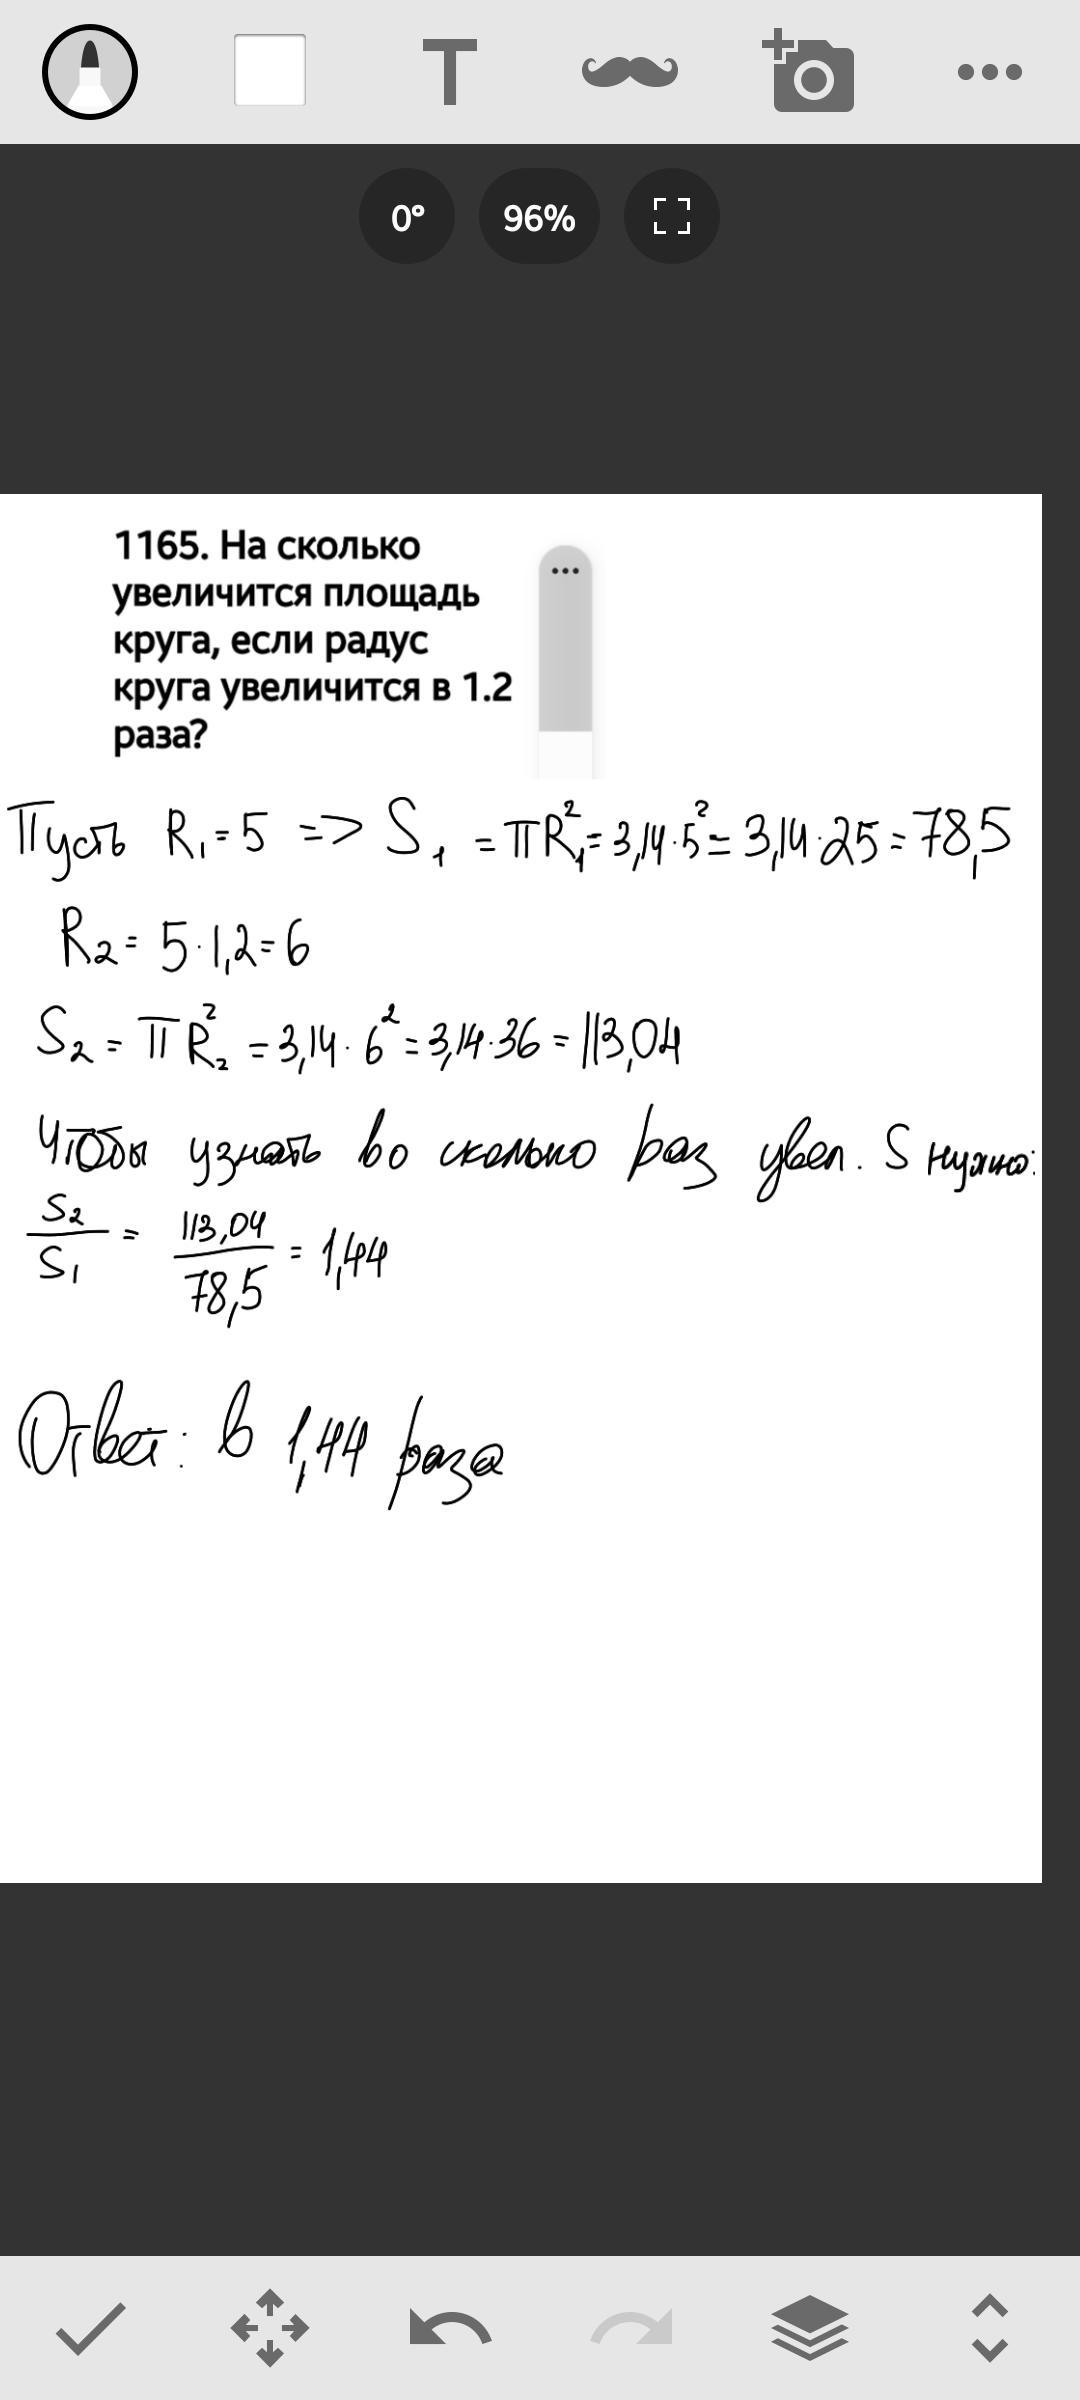 T
0° 96%
1165. На сколько
увеличится площадь
круга, если радус
круга увеличится в 1.2
раза?
Пусть R₁ = 5 => S₁ = πR₁² = 3,14 · 5² = 3,14 · 25 = 78,5
R₂ = 5 · 1,2 = 6
S₂ = πR₂² = 3,14 · 6² = 3,14 · 36 = 113,04
Чтобы узнать во сколько раз увел. S нужно:
S₂/S₁ = 113,04/78,5 = 1,44
Ответ: в 1,44 раза